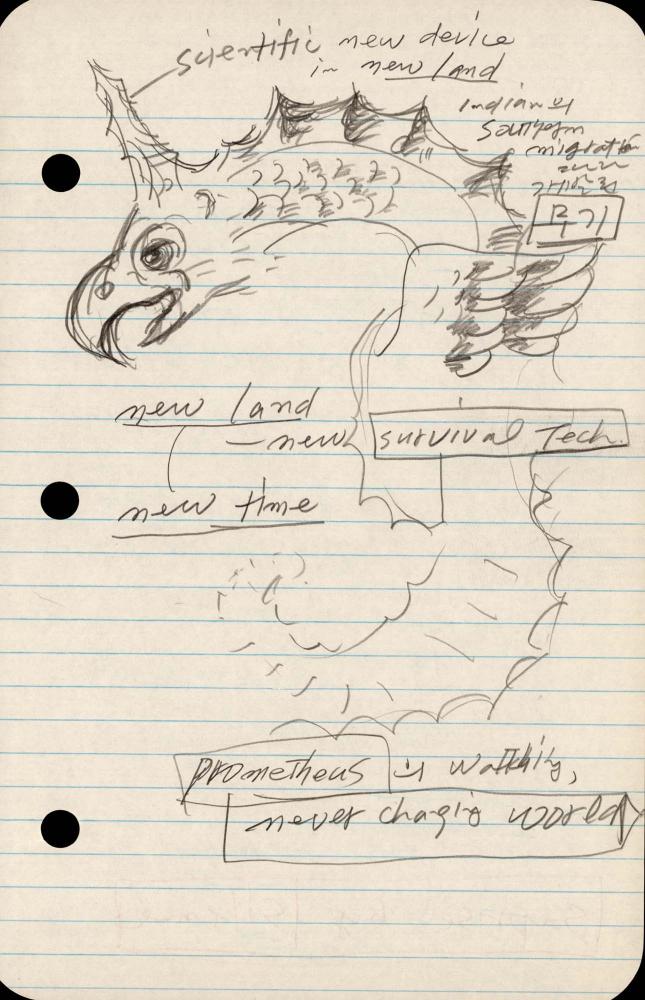 scientific new device
in new land
Indian의
Southern
migration
무기
new land
— new survival Tech.
new time
Prometheus의 Watthig,
never changig world